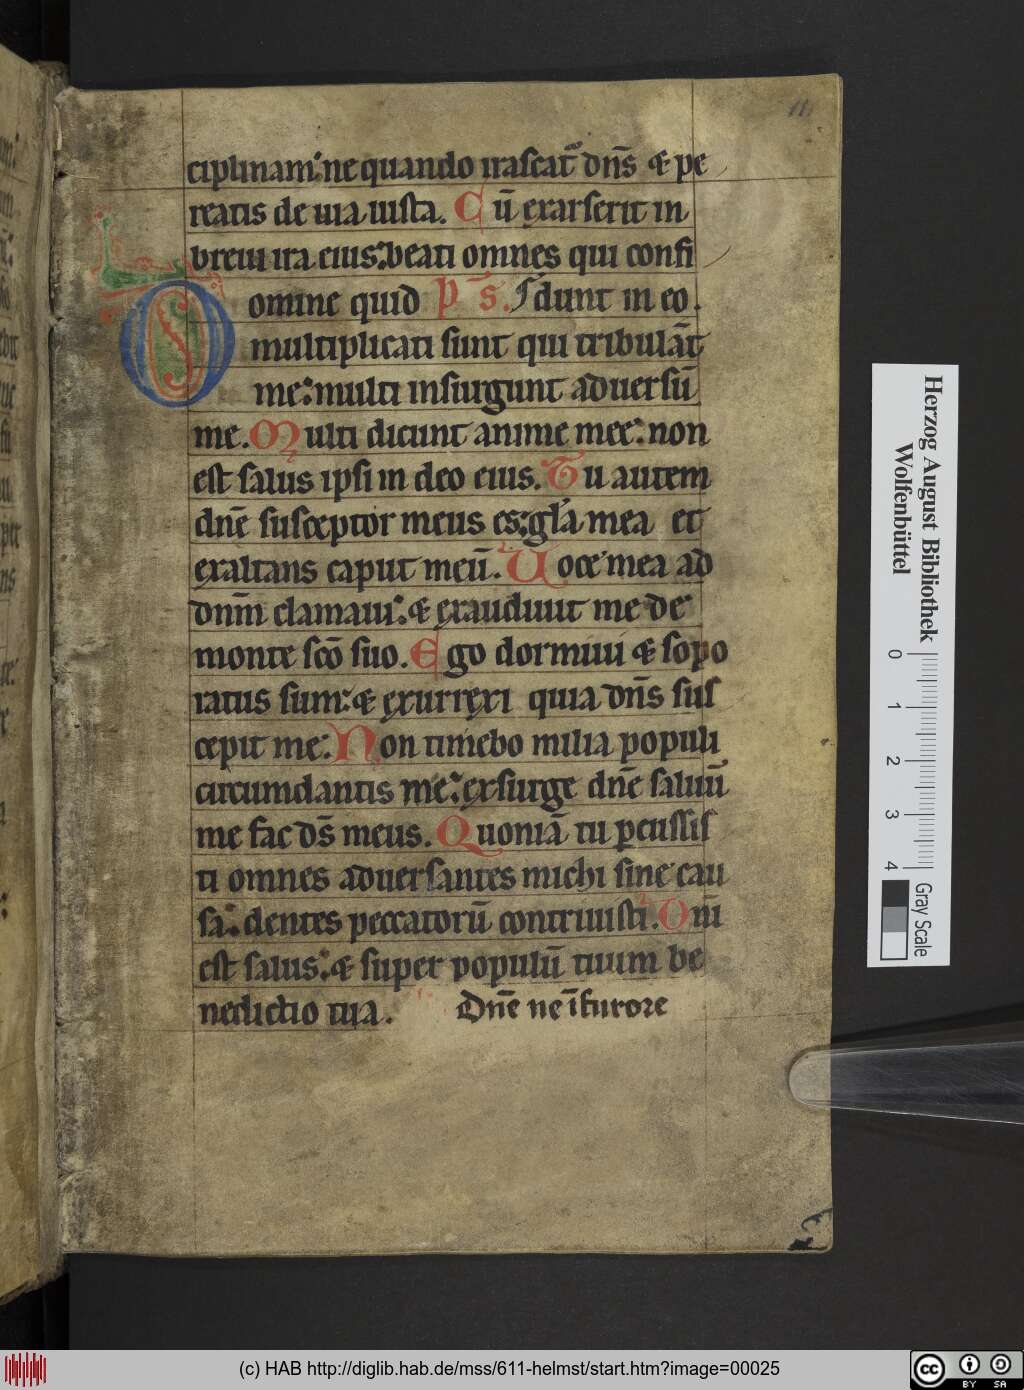 11.
ciplinam: ne quando irascat᷑ dn̄s & pe
reatis de uia iusta. Cū exarserit in
breui ira eius: beati omnes qui confi
omine quid Ps̄. dunt in eo.
multiplicati sunt qui tribulāt
me: multi insurgunt aduersū
me. Multi dicunt anime mee: non
est salus ipsi in deo eius. Tu autem
dn̄e susceptor meus es: gl̄a mea et
exaltans caput meū. Uoce mea ad
dnm̄ clamaui: & exaudiuit me de
monte scō suo. Ego dormiui & sopo
ratus sum: & exurrexi quia dn̄s sus
cepit me: Non timebo milia populi
circumdantis me: exsurge dn̄e saluū
me fac ds̄ meus. Quoniā tu ꝑcussis
ti omnes aduersantes michi sine cau
sa: dentes peccatorū contriuisti. Dnī
est salus: & super populū tuum be
nedictio tua. Dn̄e ne ī furore
Herzog August Bibliothek
Wolfenbüttel
0 1 2 3 4
Gray Scale
(c) HAB http://diglib.hab.de/mss/611-helmst/start.htm?image=00025
cc BY SA